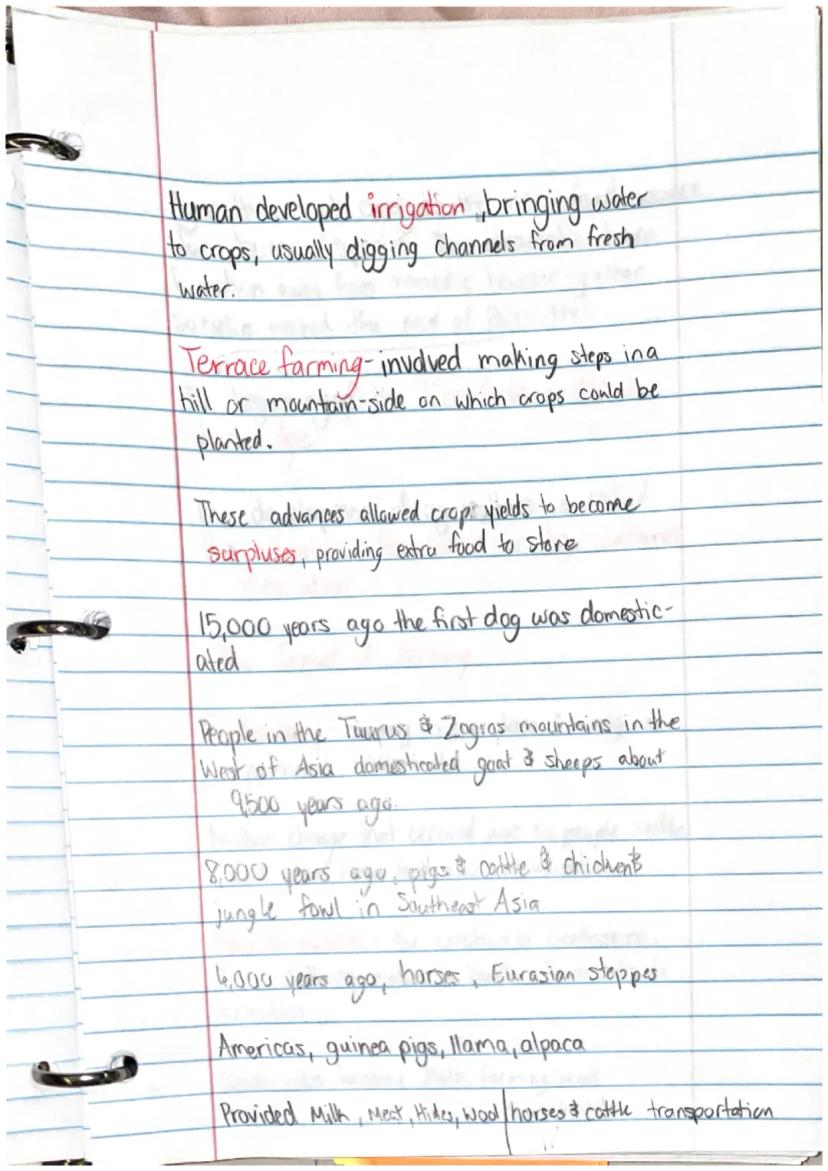 Human developed irrigation, bringing water
to crops, usually digging channels from fresh
water.
Terrace farming - involved making steps in a
hill or mountain-side on which crops could be
planted.
These advances allowed crop yields to become
surpluses, providing extra food to store
15,000 years ago the first dog was domestic-
ated
People in the Taurus & Zagros mountains in the
West of Asia domesticated goat & sheeps about
9,500 years ago.
8,000 years ago, pigs & cattle & chicken &
jungle fowl in Southeast Asia
6,000 years ago, horses, Eurasian steppes
Americas, guinea pigs, llama, alpaca
Provided Milk, Meat, Hides, Wool | horses & cattle transportation